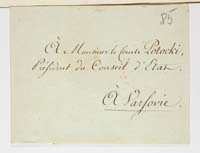 85
À Monsieur le Comte Potocki,
Président du Conseil d'Etat.
À Varsovie.